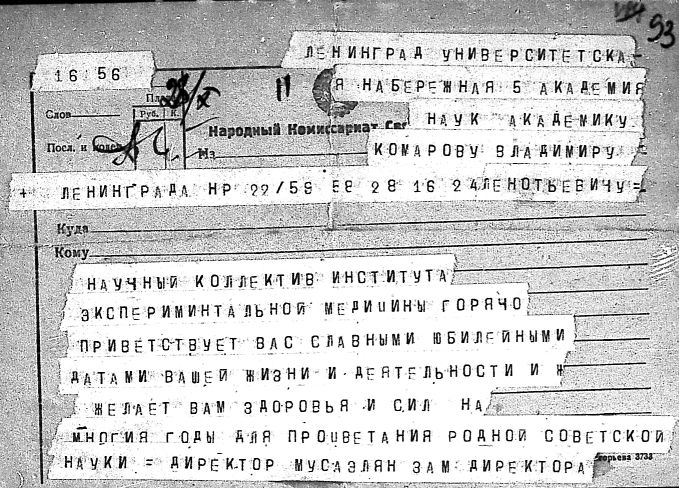 93
ЛЕНИНГРАД УНИВЕРСИТЕТСКА
16 56
Я НАБЕРЕЖНАЯ 5 АКАДЕМИЯ
28/X
11
Слов
Руб. К.
НАУК АКАДЕМИКУ
Народный Комиссариат
Посл. и
КОМАРОВУ ВЛАДИМИРУ
Из
+ ЛЕНИНГРАДА НР 22/59 58 28 16 24 ЛЕОНТЬЕВИЧУ=
Куда
Кому
НАУЧНЫЙ КОЛЛЕКТИВ ИНСТИТУТА
ЭКСПЕРИМИНТАЛЬНОЙ МЕДИЦИНЫ ГОРЯЧО
ПРИВЕТСТВУЕТ ВАС СЛАВНЫМИ ЮБИЛЕЙНЫМИ
ДАТАМИ ВАШЕЙ ЖИЗНИ И ДЕЯТЕЛЬНОСТИ И Ж
ЖЕЛАЕТ ВАМ ЗДОРОВЬЯ И СИЛ НА
МНОГИЯ ГОДЫ ДЛЯ ПРОЦВЕТАНИЯ РОДНОЙ СОВЕТСКОЙ
НАУКИ = ДИРЕКТОР МУСАЭЛЯН ЗАМ ДИРЕКТОРА
3733